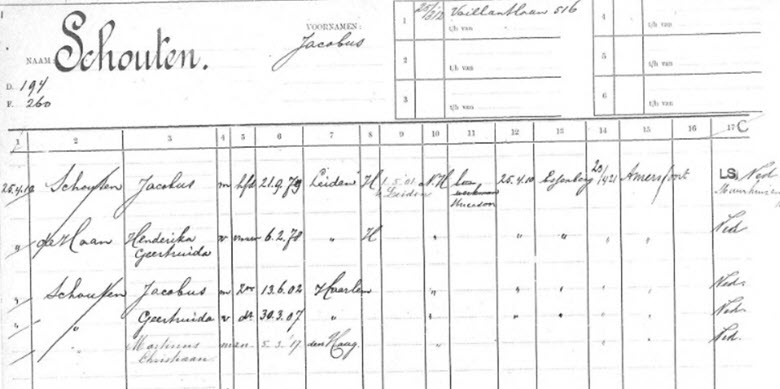 NAAM: Schouten.
VOORNAMEN:
Jacobus
D. 194
F. 260
1 Vaillantlaan 516
t/h van
2
t/h van
3
t/h van
4
t/h van
5
t/h van
6
t/h van
1 2 3 4 5 6 7 8 9 10 11 12 13 14 15 16 17 C
25.4.10 Schouten Jacobus m hfd 21.9.79 Leiden H Leiden N.H 25.4.10 Amersfoort LS Ned
" de Haan Henderika v 6.2.78 " H " " " " " Ned
Geertruida
" Schouten Jacobus m zn 13.6.02 Haarlem " " " " " Ned.
" " Geertruida v dr 30.3.07 " " " " " " Ned.
" Martinus m zn 5.3.17 den Haag " " " " " Ned.
Christiaan